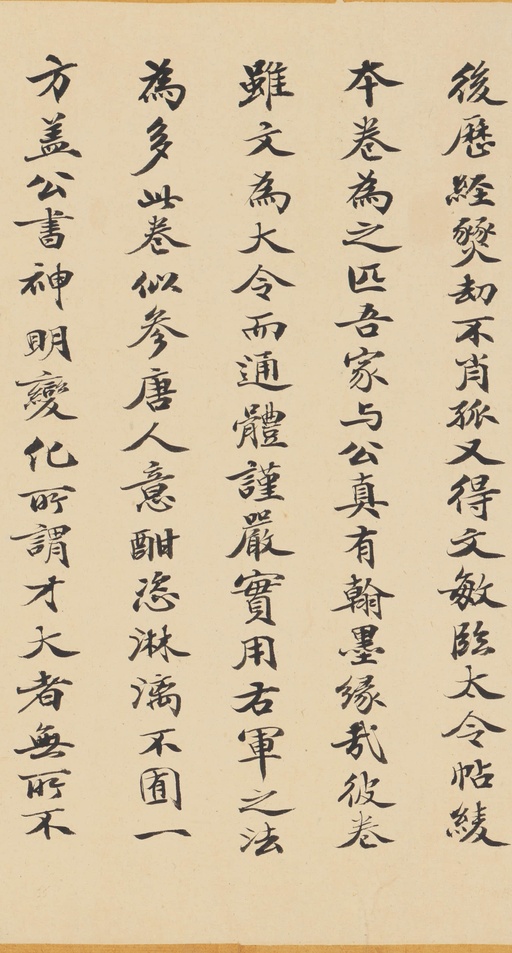 後歷經燹劫不肖孤又得文敏臨太令帖綾
本卷為之匹吾家与公真有翰墨緣哉彼卷
雖文為大令而通體謹嚴實用右軍之法
為多此卷似參唐人意酣恣淋漓不囿一
方盖公書神明變化所謂才大者無所不